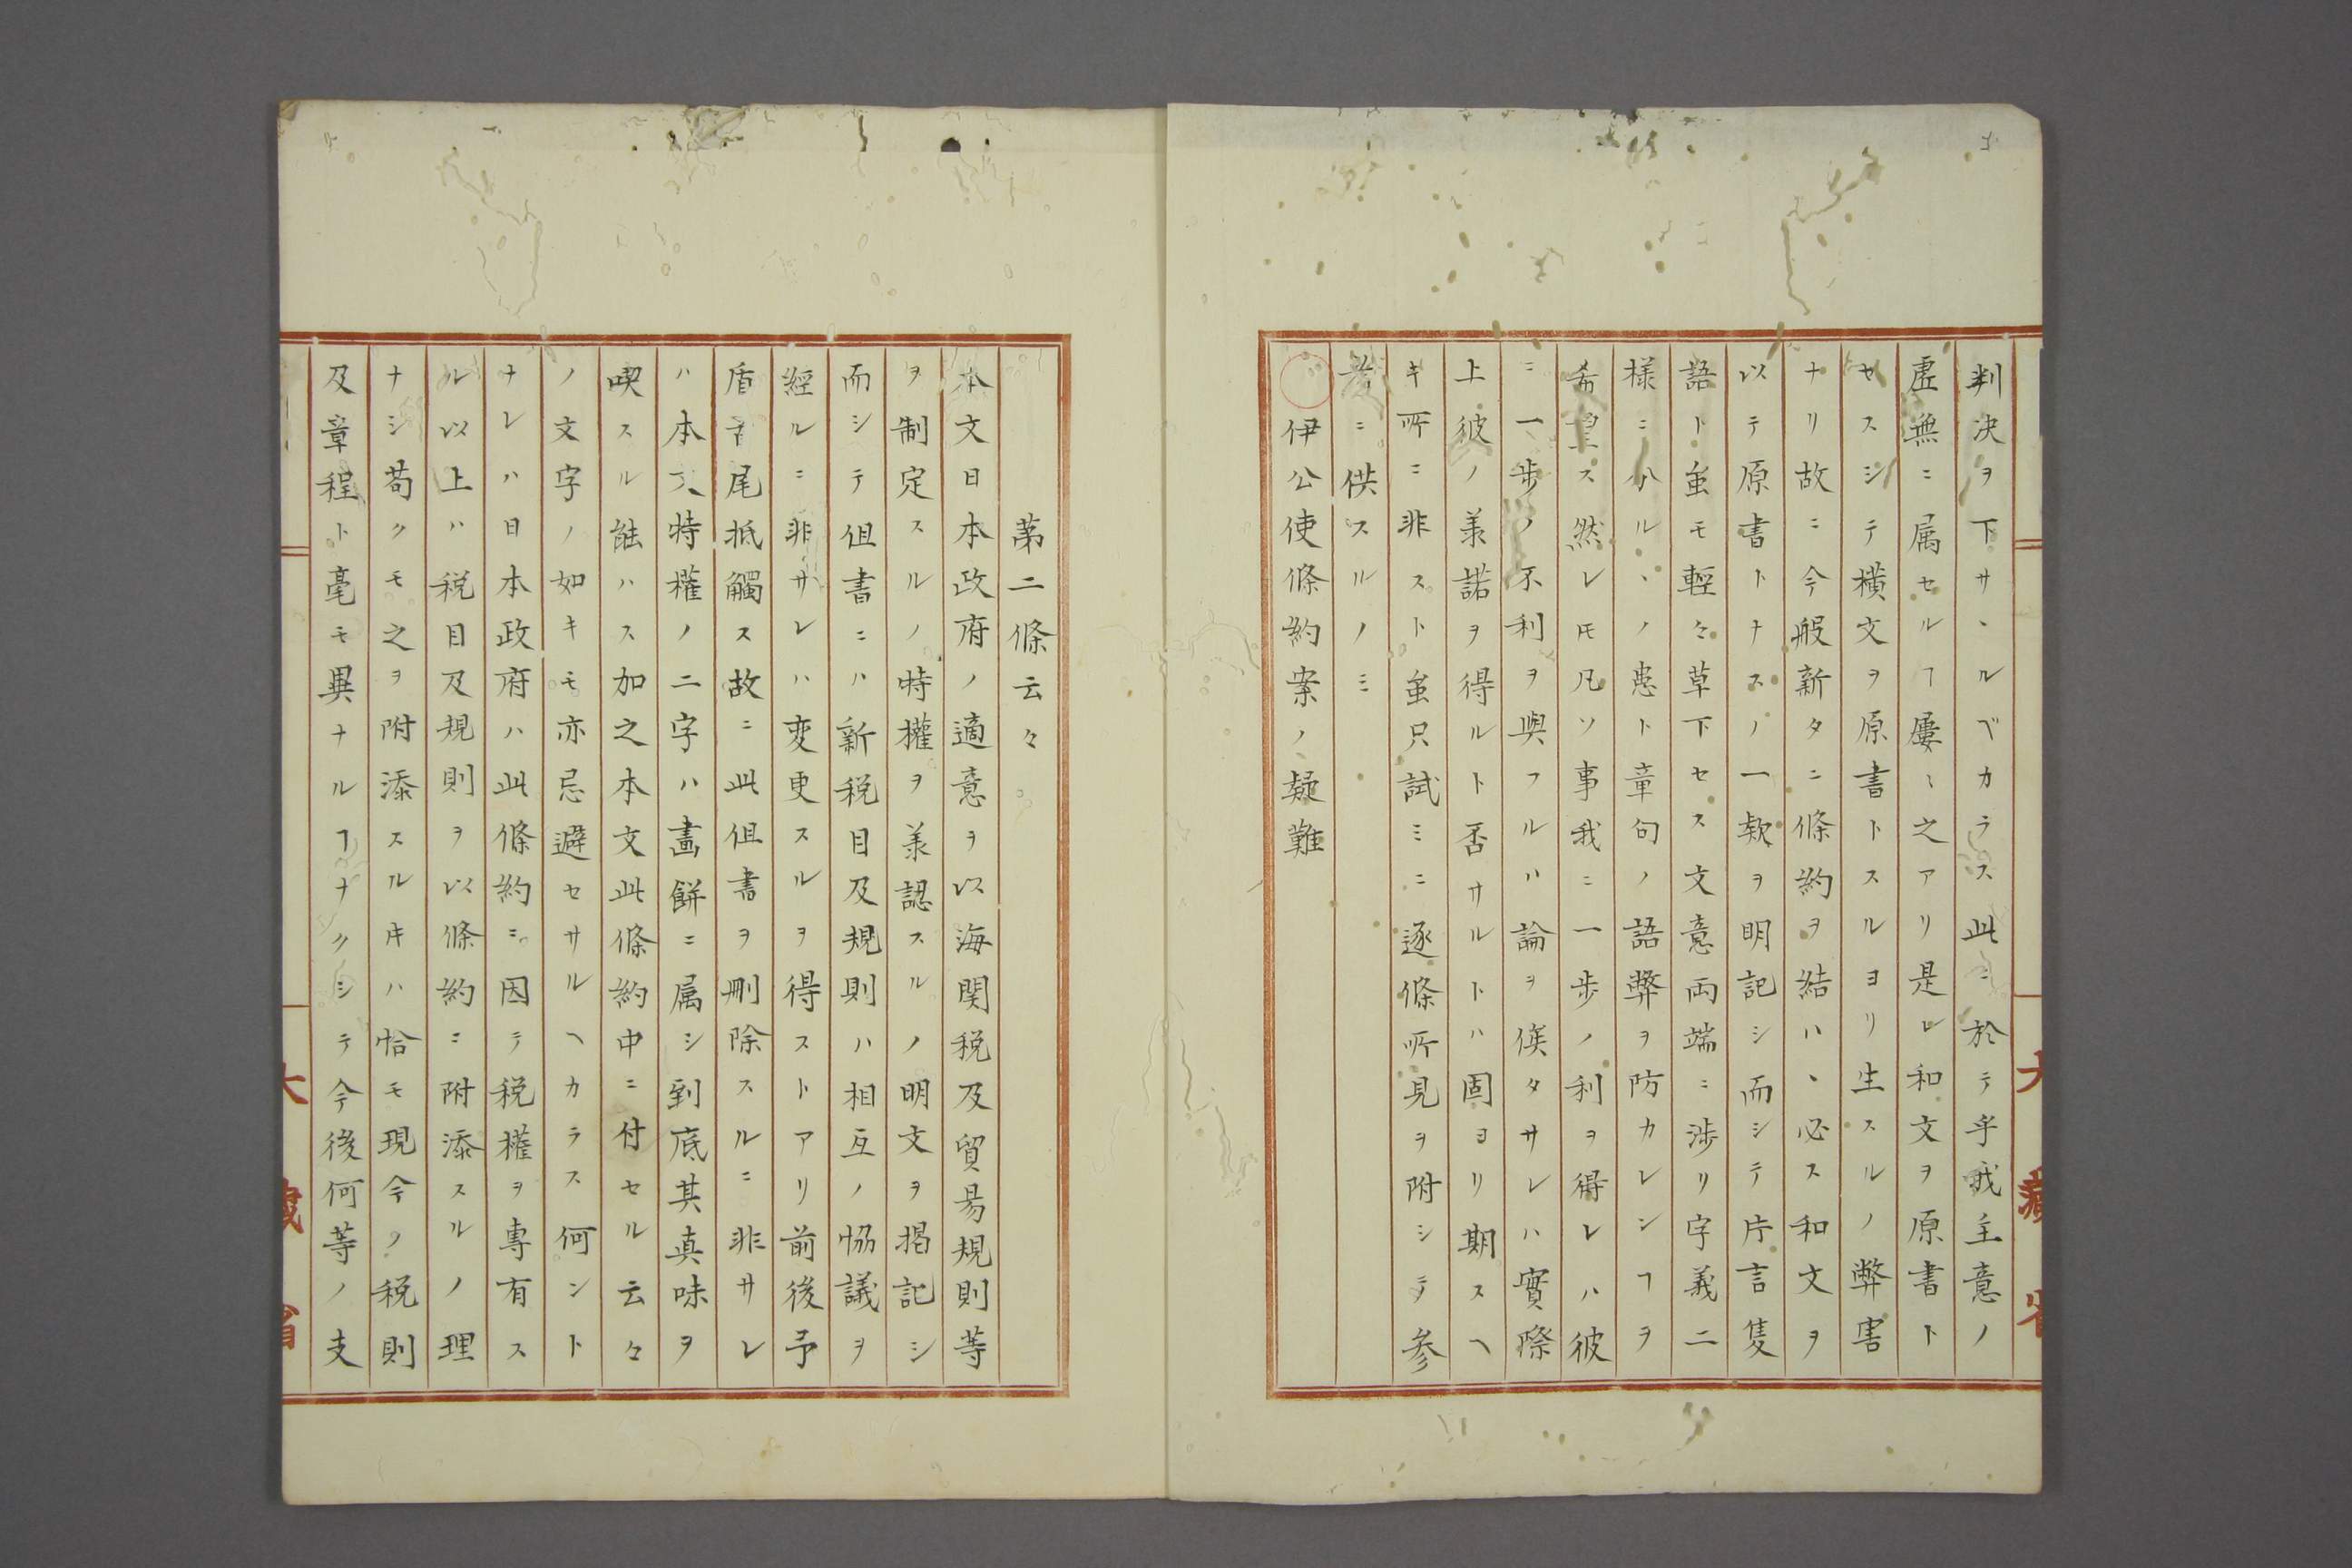 判决ヲ下サヽルベカラス此ニ於テ乎我主意ノ
虚無ニ属セルヿ屢〻之アリ是レ和文ヲ原書ト
セスシテ横文ヲ原書トスルヨリ生スルノ弊害
ナリ故ニ今般新タニ條約ヲ結ハヽ必ス和文ヲ
以テ原書トナスノ一欵ヲ明記シ而シテ片言隻
語ト虽モ輕々草下セス文意両端ニ渉リ字義二
様ニ分ルヽノ患ト章句ノ語弊ヲ防カレンヿヲ
希望ス然レ𪜈凡ソ事我ニ一歩ノ利ヲ得レハ彼
ニ一歩ノ不利ヲ與フルハ論ヲ俟タサレハ實際
上彼ノ羕諾ヲ得ルト否サルトハ固ヨリ期スヘ
キ所ニ非スト虽只試ミニ逐條所見ヲ附シテ参
考ニ供スルノミ
伊公使條約案ノ疑難
第二條云々
本文日本政府ノ適意ヲ以海関税及貿易規則等
ヲ制定スルノ特權ヲ羕認スルノ明文ヲ掲記シ
而シテ伹書ニハ新税目及規則ハ相互ノ協議ヲ
經ルニ非サレハ変更スルヲ得ストアリ前後予
盾首尾抵觸ス故ニ此伹書ヲ刪除スルニ非サレ
ハ本文特權ノ二字ハ畵餅ニ属シ到底其真味ヲ
喫スル能ハス加之本文此條約中ニ付セル云々
ノ文字ノ如キモ亦忌避セサルヘカラス何ント
ナレハ日本政府ハ此條約ニ因テ税權ヲ専有ス
ル以上ハ税目及規則ヲ以條約ニ附添スルノ理
ナシ苟クモ之ヲ附添スル𪜈ハ恰モ現今ノ税則
及章程ト毫モ異ナルヿナクシテ今後何等ノ支
大藏省
大藏省